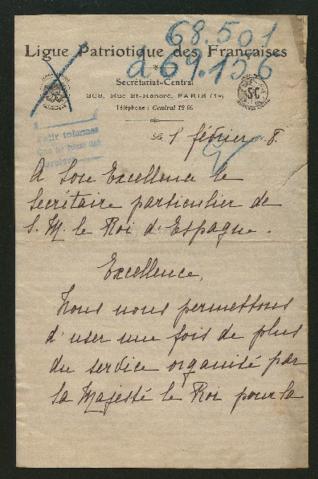 68.501
Ligue Patriotique des Françaises
a 69.156
Secrétariat-Central
368, Rue St-Honoré, PARIS (1er)
Téléphone : Central 19 66
1 février 8.
A Son Excellence le
Secrétaire particulier de
S. M. le Roi d'Espagne.
Excellence,
Nous nous permettons
d'user une fois de plus
du service organisé par
sa Majesté le Roi pour la